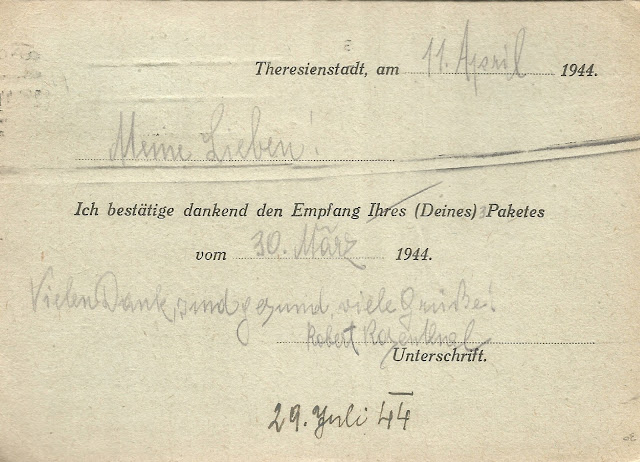 Theresienstadt, am 11. April 1944.
Meine Lieben!
Ich bestätige dankend den Empfang Ihres (Deines) Paketes
vom 30. März 1944.
Vielen Dank, sind gesund, viele Grüße!
Robert Rosenthal
Unterschrift.
29. Juli 44